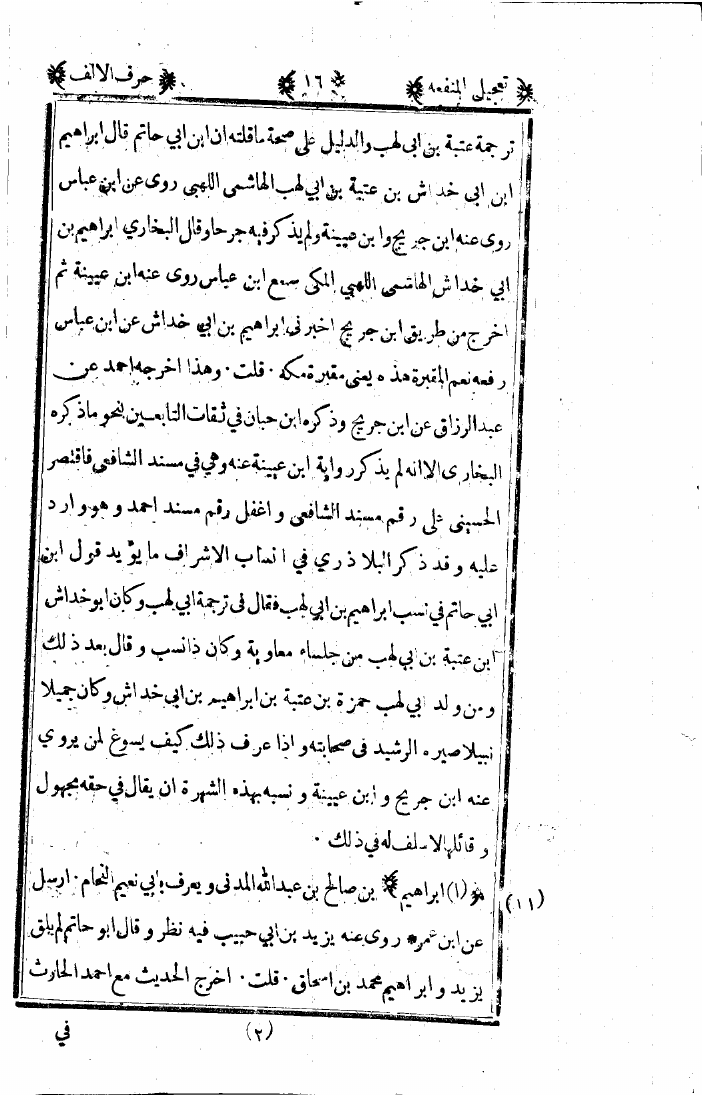 تعجيل المنفعه ١٦ حرف الالف
ترجمة عتبة بن ابى لهب والدليل على صحة ما قلته ان ابن ابي حاتم قال ابراهيم
ابن ابى خداش بن عتبة بن ابي لهب الهاشمى اللهبى روى عن ابن عباس
روى عنه ابن جريج وابن عيينة ولم يذكر فيه جرحا وقال البخاري ابراهيم بن
ابي خداش الهاشمى اللهبي المكى سمع ابن عباس روى عنه ابن عيينة ثم
اخرج من طريق ابن جريج اخبرنى ابراهيم بن ابي خداش عن ابن عباس
رفعه نعم المقبرة هذه يعنى مقبرة مكه ٠ قلت ٠ وهذا اخرجه احمد عن
عبد الرزاق عن ابن جريج وذكره ابن حبان في ثقات التابعين بنحو ما ذكره
البخارى الا انه لم يذكر رواية ابن عيينة عنه وهي في مسند الشافعى فاقتصر
الحسينى على رقم مسند الشافعى واغفل رقم مسند احمد وهو وارد
عليه وقد ذكر البلاذري في انساب الاشراف ما يؤيد قول ابن
ابي حاتم في نسب ابراهيم بن ابي لهب فقال فى ترجمة ابي لهب وكان ابو خداش
ابن عتبة بن ابي لهب من جلساء معاوية وكان ذا نسب وقال بعد ذلك
ومن ولد ابي لهب حمزة بن عتبة بن ابراهيم بن ابى خداش وكان جميلا
نبيلا صيره الرشيد فى صحابته واذا عرف ذلك كيف يسوغ لمن يروي
عنه ابن جريج وابن عيينة ونسبه بهذه الشهرة ان يقال في حقه مجهول
وقائلها لا سلف له في ذلك ٠
(١١) (ا) ابراهيم بن صالح بن عبد الله المدنى ويعرف بابي نعيم النحام ٠ ارسل
عن ابن عمر * روى عنه يزيد بن ابي حبيب فيه نظر وقال ابو حاتم لم يلق
يزيد وابراهيم محمد بن اسحاق ٠ قلت ٠ اخرج الحديث مع احمد الحارث
(٢) في